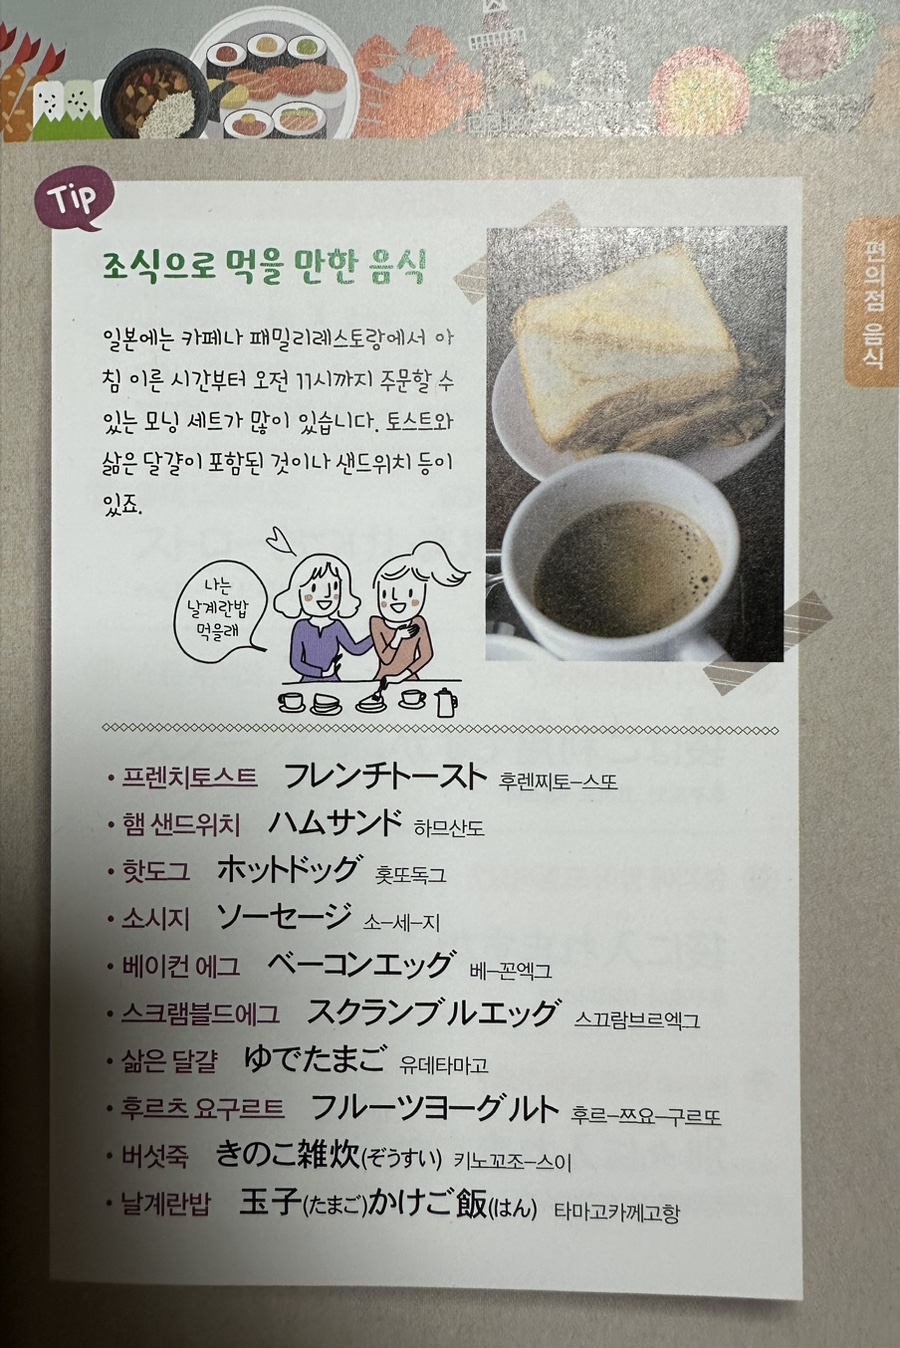 Tip
조식으로 먹을 만한 음식
일본에는 카페나 패밀리레스토랑에서 아
침 이른 시간부터 오전 11시까지 주문할 수
있는 모닝 세트가 많이 있습니다. 토스트와
삶은 달걀이 포함된 것이나 샌드위치 등이
있죠.
나는
날계란밥
먹을래
• 프렌치토스트 フレンチトースト 후렌찌토-스또
• 햄 샌드위치 ハムサンド 하므산도
• 핫도그 ホットドッグ 홋또독그
• 소시지 ソーセージ 소-세-지
• 베이컨 에그 ベーコンエッグ 베-꼰엑그
• 스크램블드에그 スクランブルエッグ 스끄람브르엑그
• 삶은 달걀 ゆでたまご 유데타마고
• 후르츠 요구르트 フルーツヨーグルト 후르-쯔요-구르또
• 버섯죽 きのこ雑炊(ぞうすい) 키노꼬조-스이
• 날계란밥 玉子(たまご)かけご飯(はん) 타마고카께고항
편의점 음식